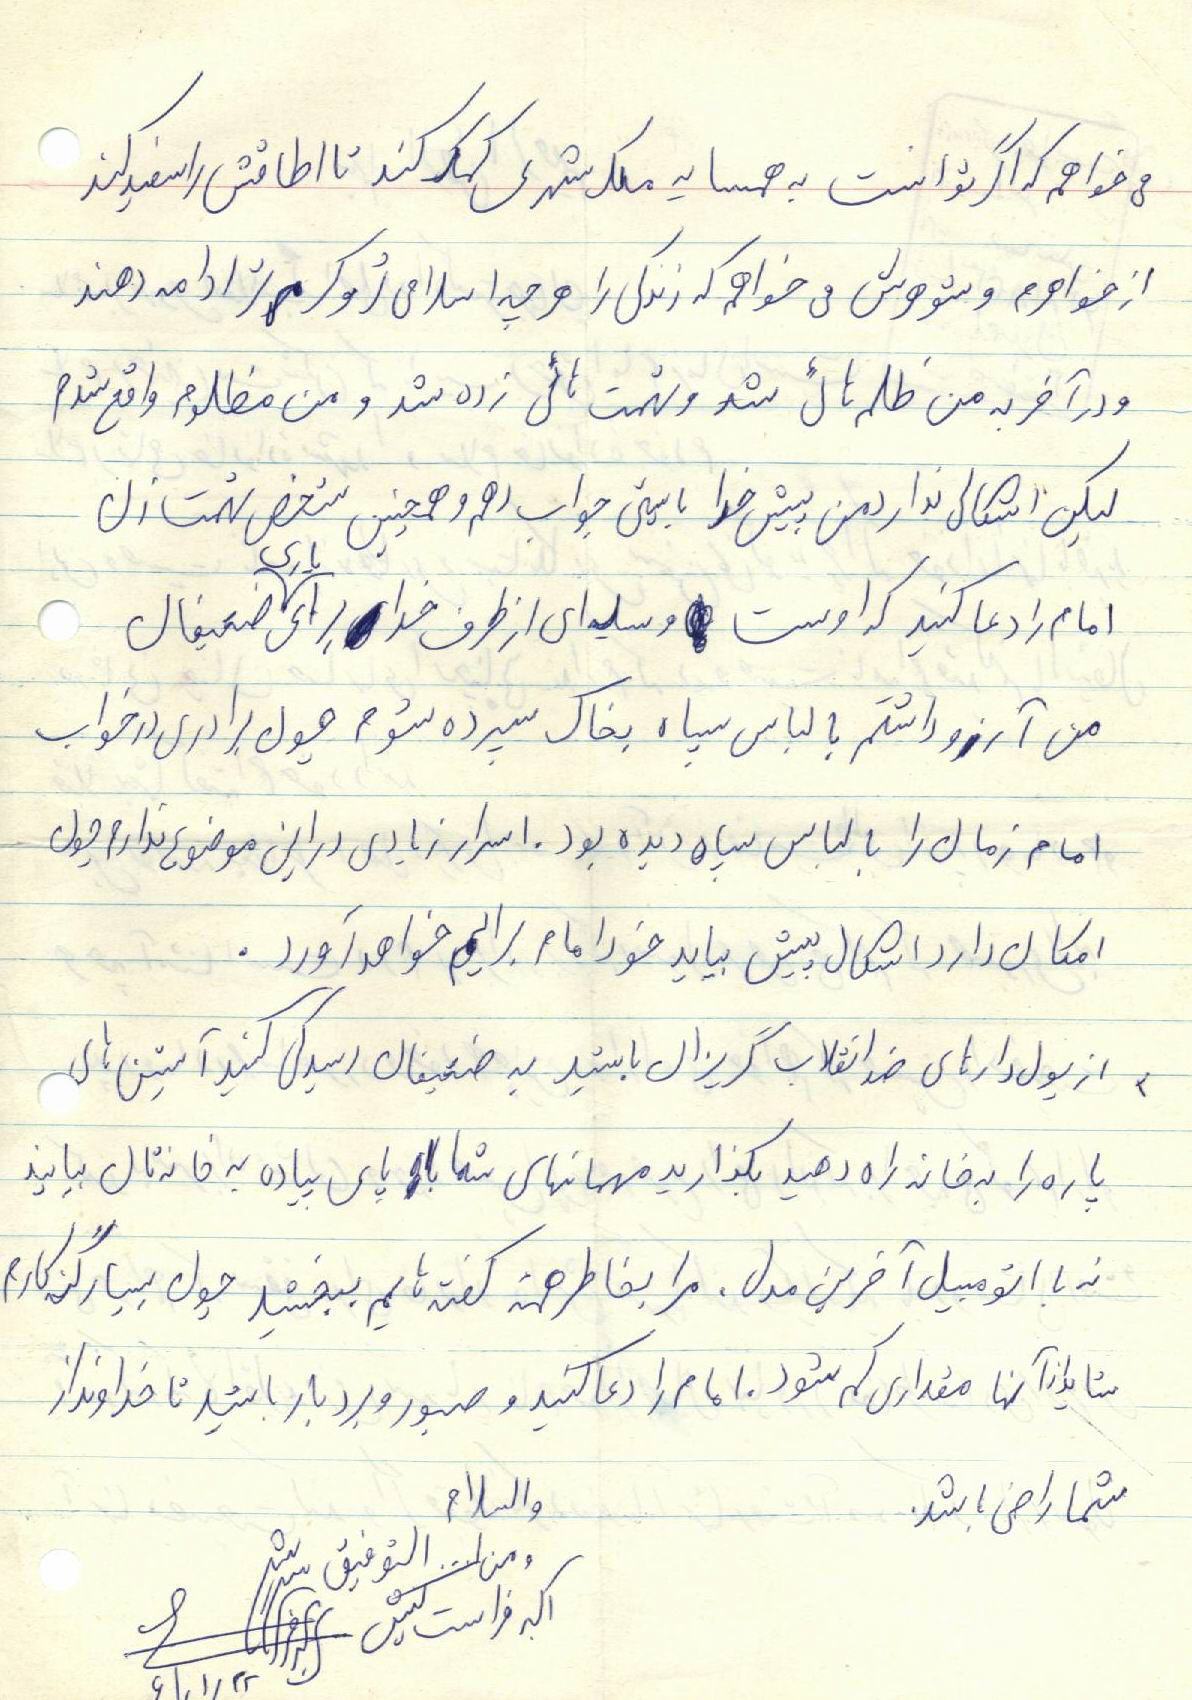 می خواهم که اگر توانست به همسایه ملک شهری کمک کند تا اطاقش را سفید کند
از خواهرم و شوهرش می خواهم که زندگی را هر چه اسلامی تر و کرم تر ادامه دهند
و در آخر به من ظلم هائی شد و تهمت هائی زده شد و من مظلوم واقع شدم
لیکن اشکالی ندارد من پیش خدا بایستی جواب دهم و همچنین شخص تهمت زن
امام را دعا کنید که اوست وسیله ای از طرف خدا برای یاری ضعیفان
من آرزو داشتم با لباس سپاه بخاک سپرده شوم چون برادری در خواب
امام زمان را با لباس سپاه دیده بود . اسرار زیادی در این موضوع ندارم چون
امکان دارد اشکال پیش بیاید خود امام برایم خواهد آورد .
از پول دارهای ضد انقلاب گریزان باشید به ضعیفان رسیدگی کنید آستین های
پاره را به خانه راه دهید بگذارید مهمانهای شما با پای پیاده به خانه تان بیایند
نه با اتومبیل آخرین مدل . مرا بخاطر همه گفته هایم ببخشید چون بسیار گنه کارم
شاید از آنها مقداری کم شود . امام را دعا کنید و صبور و بردبار باشید تا خداوند از
شما راضی باشد .
والسلام
و من ا... التوفیق
اکبر فراست کیش